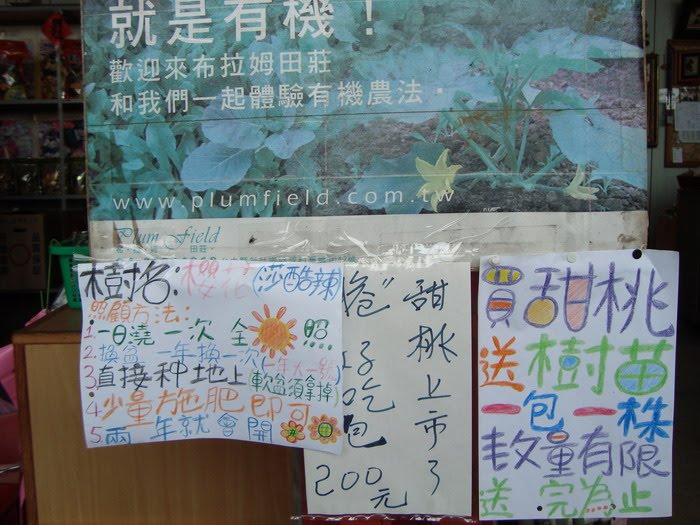 就是有機！
歡迎來布拉姆田莊
和我們一起體驗有機農法。
www.plumfield.com.tw
Plum Field
田莊
樹名:櫻花(莎酷辣)
照顧方法:
1.一日澆一次 全 照
2.換盆 一年換一次(一年大一級)
3.直接種地上(軟盆須拿掉)
4.少量施肥即可
5.兩年就會開
甜桃上市了
好吃
包200元
買甜桃
送樹苗
一包一株
數量有限
送完為止